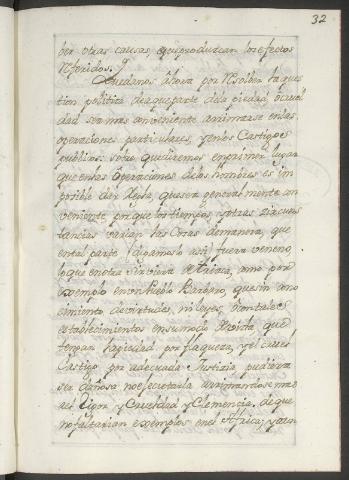 32
ber otras causas, que produzcan los efectos
referidos.
Quedanos ahora por resolver la ques
tion politica de aque parte dela piedad, ó cruel
dad sea mas conveniente arrimarse en las
operaciones particulares, y en los Castigos
publicos: sobre que diremos en primer lugar
que en las operaciones de los hombres es im
posible dar Regla, que sea generalmente con
veniente, por que los tiempos, y otras circuns
tancias varian las Cosas demanera, que
en tal parte (digamoslo asi) fuera veneno,
lo que en otra sirviera de triaca, como por
exemplo en un Pueblo Barbaro, que sin cono
cimiento de virtudes, ni leyes, con tales
establecimientos en su modo de vida, que
tengan la piedad por flaqueza, y el cruel
Castigo por adecuada Justicia, pudiera
ser dañosa no executarla arrimandose mas
al Rigor, y Crueldad y Clemencia, de que
no faltarian exemplos en el Africa; y aun